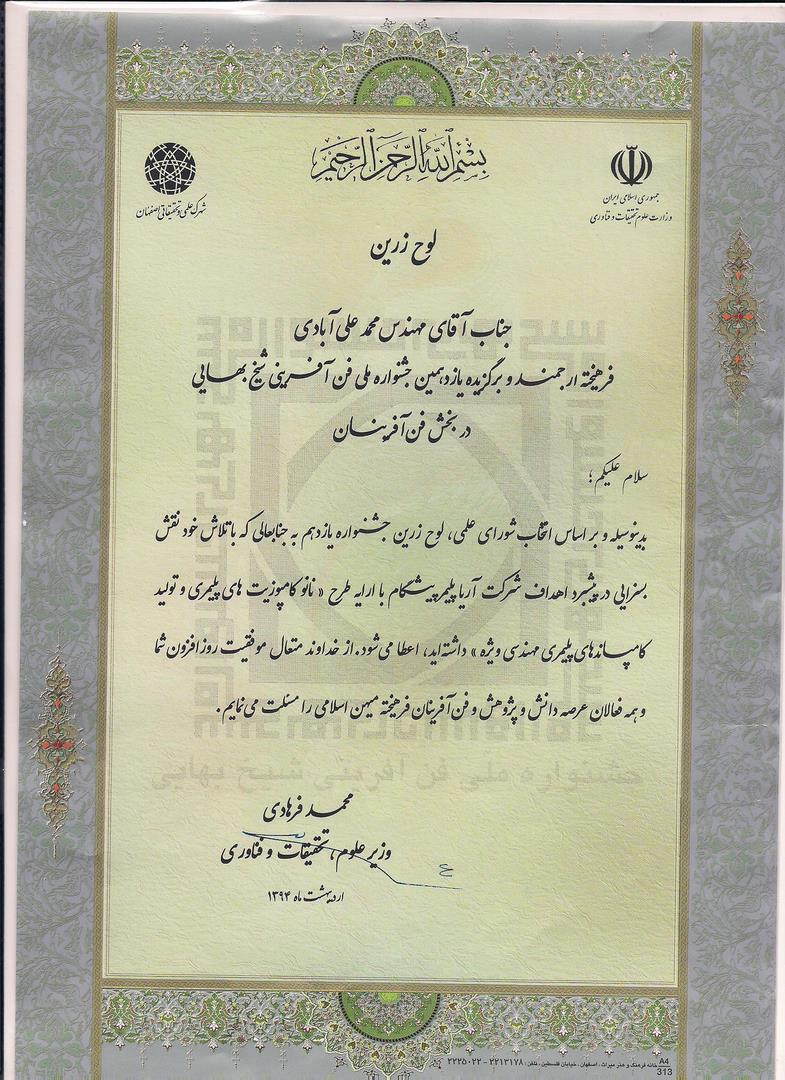 بسم الله الرحمن الرحیم
جمهوری اسلامی ایران
وزارت علوم تحقیقات و فناوری
شهرک علمی و تحقیقاتی اصفهان
لوح زرین
جناب آقای مهندس محمد علی آبادی
فرهیخته ارجمند و برگزیده یازدهمین جشنواره ملی فن آفرینی شیخ بهایی
در بخش فن آفرینان
سلام علیکم؛
بدینوسیله و بر اساس انتخاب شورای علمی، لوح زرین جشنواره یازدهم به جنابعالی که با تلاش خود نقش
بسزایی در پیشبرد اهداف شرکت آریا پلیمر پیشگام با ارایه طرح « نانو کامپوزیت های پلیمری و تولید
کامپاندهای پلیمری مهندسی ویژه » داشته‌اید، اعطا می‌شود. از خداوند متعال موفقیت روزافزون شما
و همه فعالان عرصه دانش و پژوهش و فن آفرینان فرهیخته میهن اسلامی را مسئلت می‌نمایم.
جشنواره ملی فن آفرینی شیخ بهایی
محمد فرهادی
وزیر علوم، تحقیقات و فناوری
اردیبهشت ماه ۱۳۹۴
خانه فرهنگ و هنر میراث ـ اصفهان ـ خیابان فلسطین ـ تلفن: ۲۲۱۳۱۷۸ - ۲۲۲۵۰۲۲
A4
313